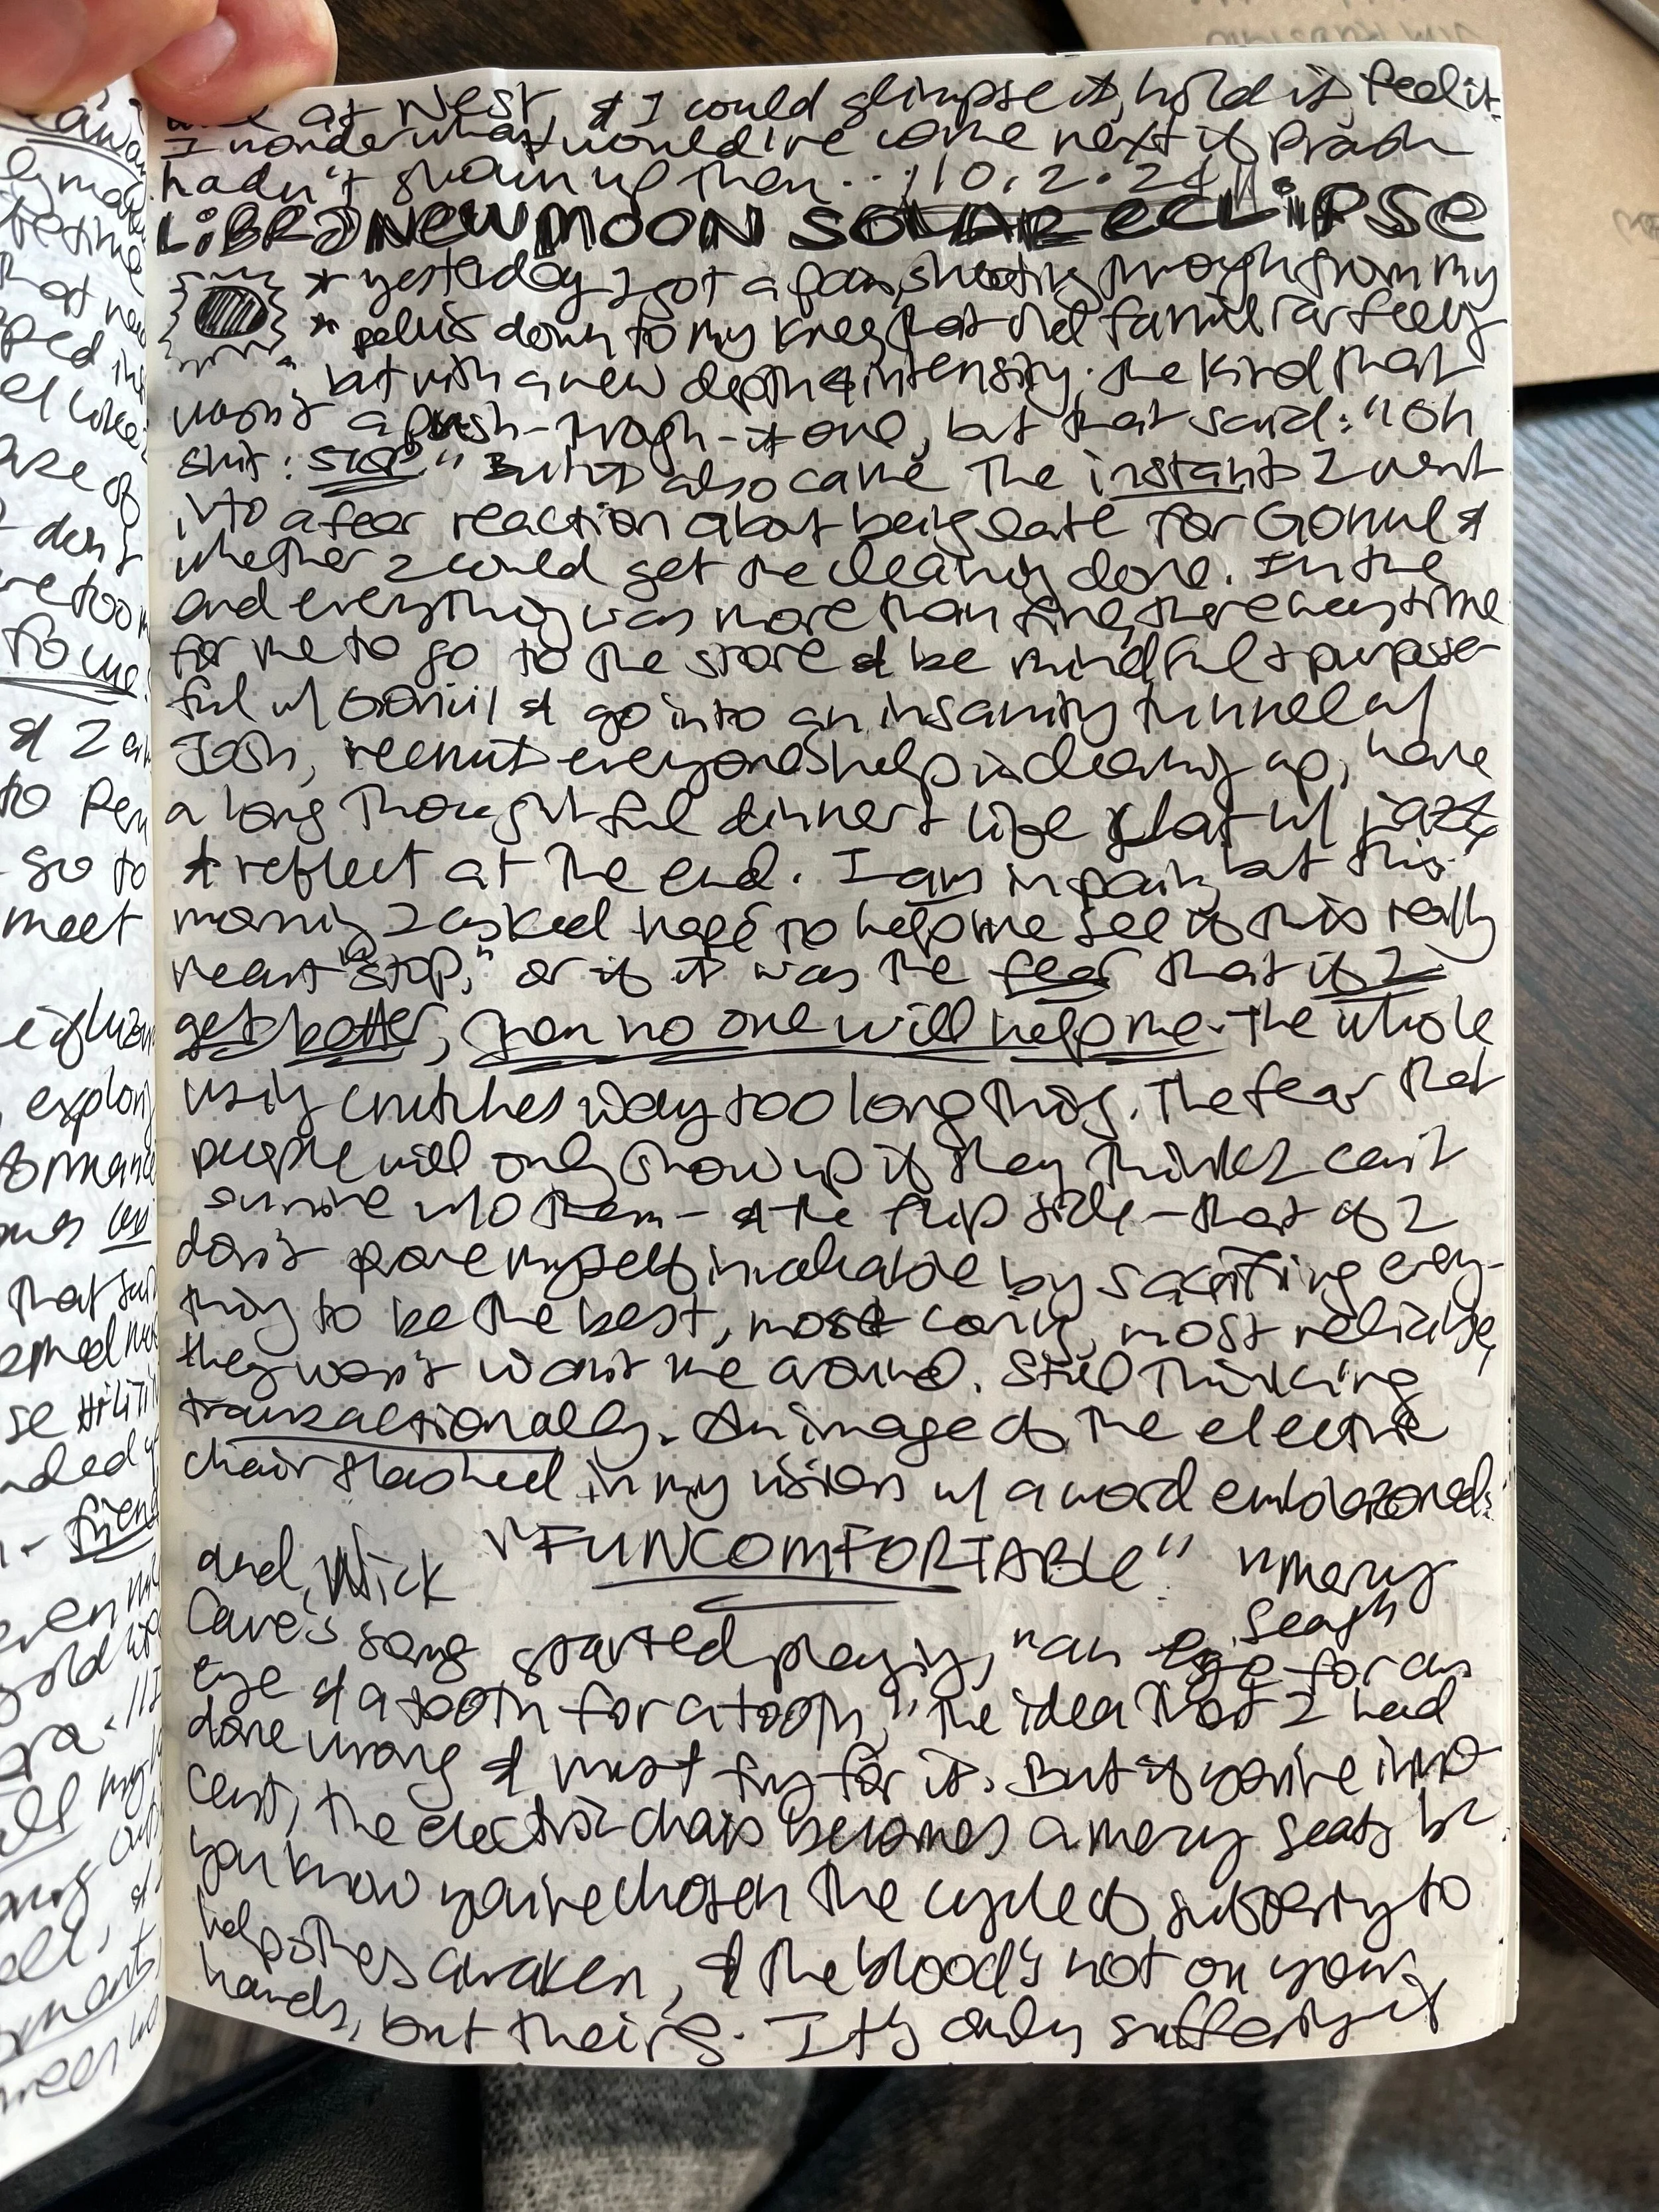 at Nest, & I could glimpse it, hold it, feel it.
I wonder what would've come next if
hadn't shown up then... 10.2.24
LIBRA NEW MOON SOLAR ECLIPSE
* yesterday I got a pain shooting through from my
* pelvis down to my knee, that did familiar feely
but with a new depth & intensity. The kind that
wasn't a push-through-it one, but that said: "Oh
shit: STOP" But it also came the instant I went
into a fear reaction about being late for Gonul &
whether I could get the cleaning done. In the
end everything was more than fine, there was time
for me to go to the store & be mindful & purpose-
ful w/ Gonul & go into an insanity tunnel w/
Josh, recruit everyone's help in cleaning up, have
a long thoughtful dinner & life chat w/ jazz
& reflect at the end. I am in pain, but this
morning I asked to help me see if this really
meant "stop," or if it was the fear that if I
get better, then no one will help me. The whole
using crutches way too long thing. The fear that
people will only show up if they think I can't
survive w/o them - & the flip side - that if I
don't prove myself invaluable by sacrificing every-
thing to be the best, most caring, most reliable,
they won't want me around. Still thinking
transactionally. An image of the electric
chair flashed in my vision w/ a word emblazoned:
"FUNCOMFORTABLE"
and, Nick "mercy
Cave's song started playing, "an seat"
eye for an
eye & a tooth for a tooth," the idea that I had
done wrong & must fry for it. But if you're inno-
cent, the electric chair becomes a mercy seat, bc
you know you've chosen the cycle of suffering to
help others awaken, & the blood's not on your
hands, but theirs. It's only suffering if